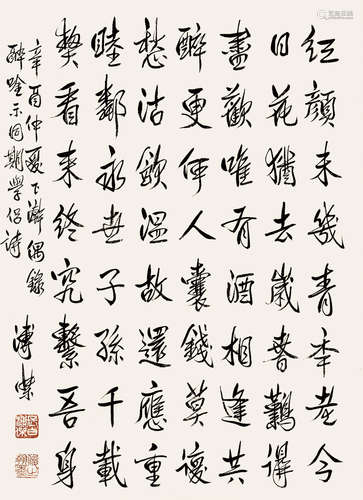 紅顏未幾青年老今
日花猶去歲春難得
盡歡唯有酒相逢共
醉更何人囊錢莫
愁沽飲溫故還應重
睦鄰永世子孫千載
樊看來終究繫吾身
辛酉仲夏下澣偶錄
醉唫示同期學侶詩
溥傑